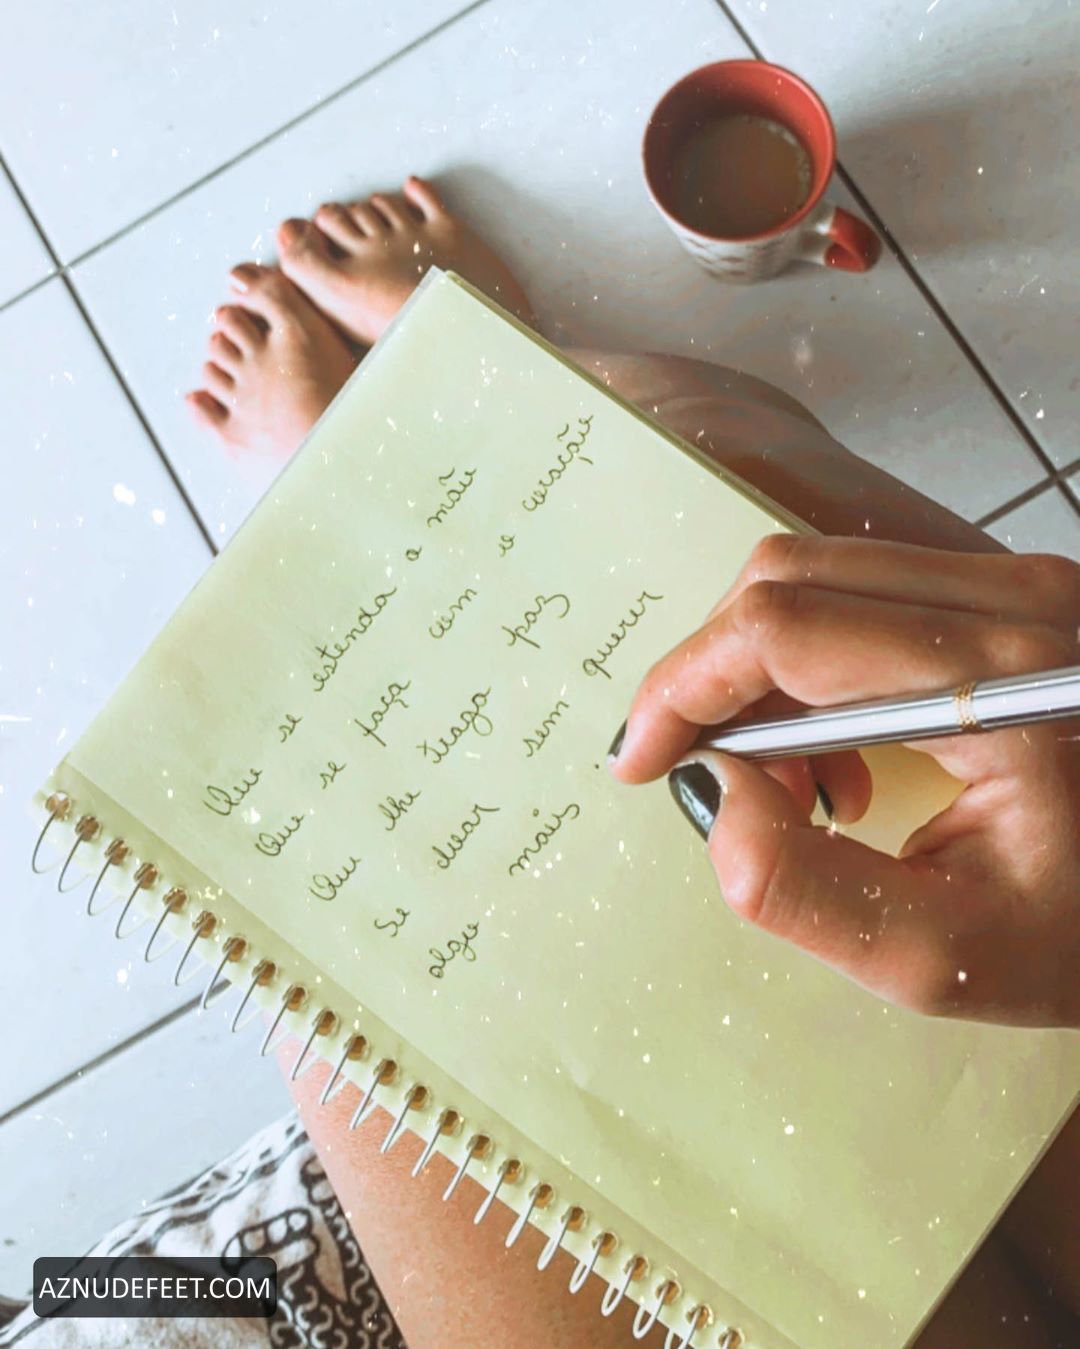 Que se estenda a mão
Que se faça com o coração
Que lhe traga paz
Se doar sem querer
algo mais
AZNUDEFEET.COM